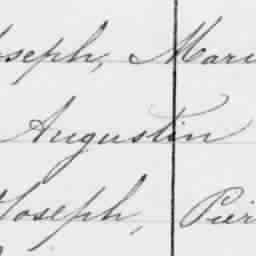 oseph, Mari
Augustin
Joseph, Pier